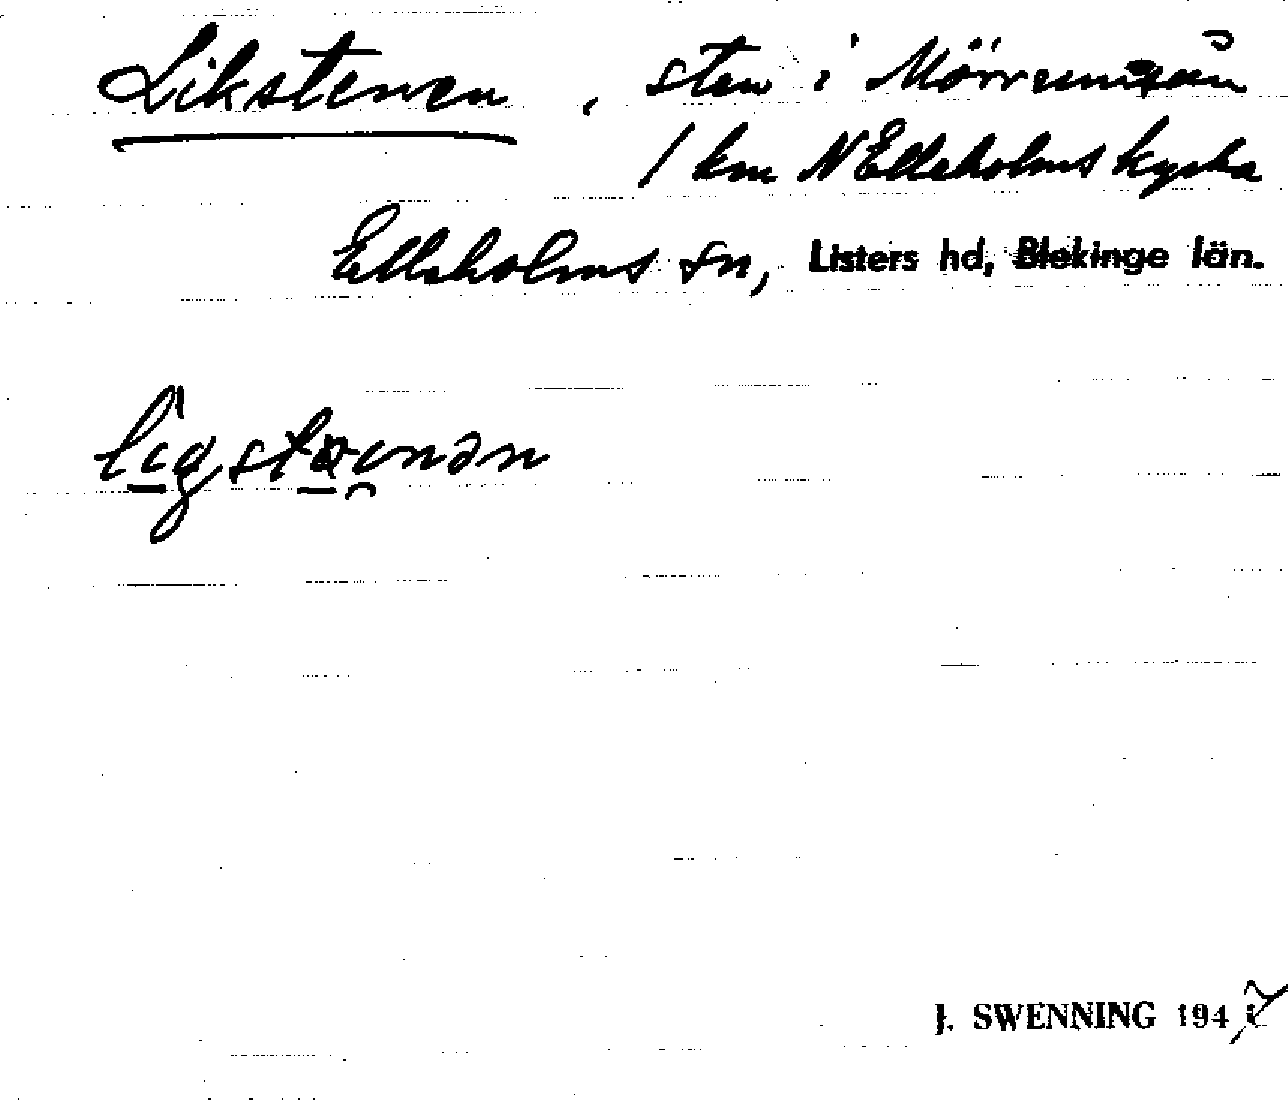 Likstenen, sten i Mörrumsån
1 km N Elleholms kyrka
Elleholms sn, Listers hd, Blekinge län.
ligstaɪnən
J. SWENNING 194